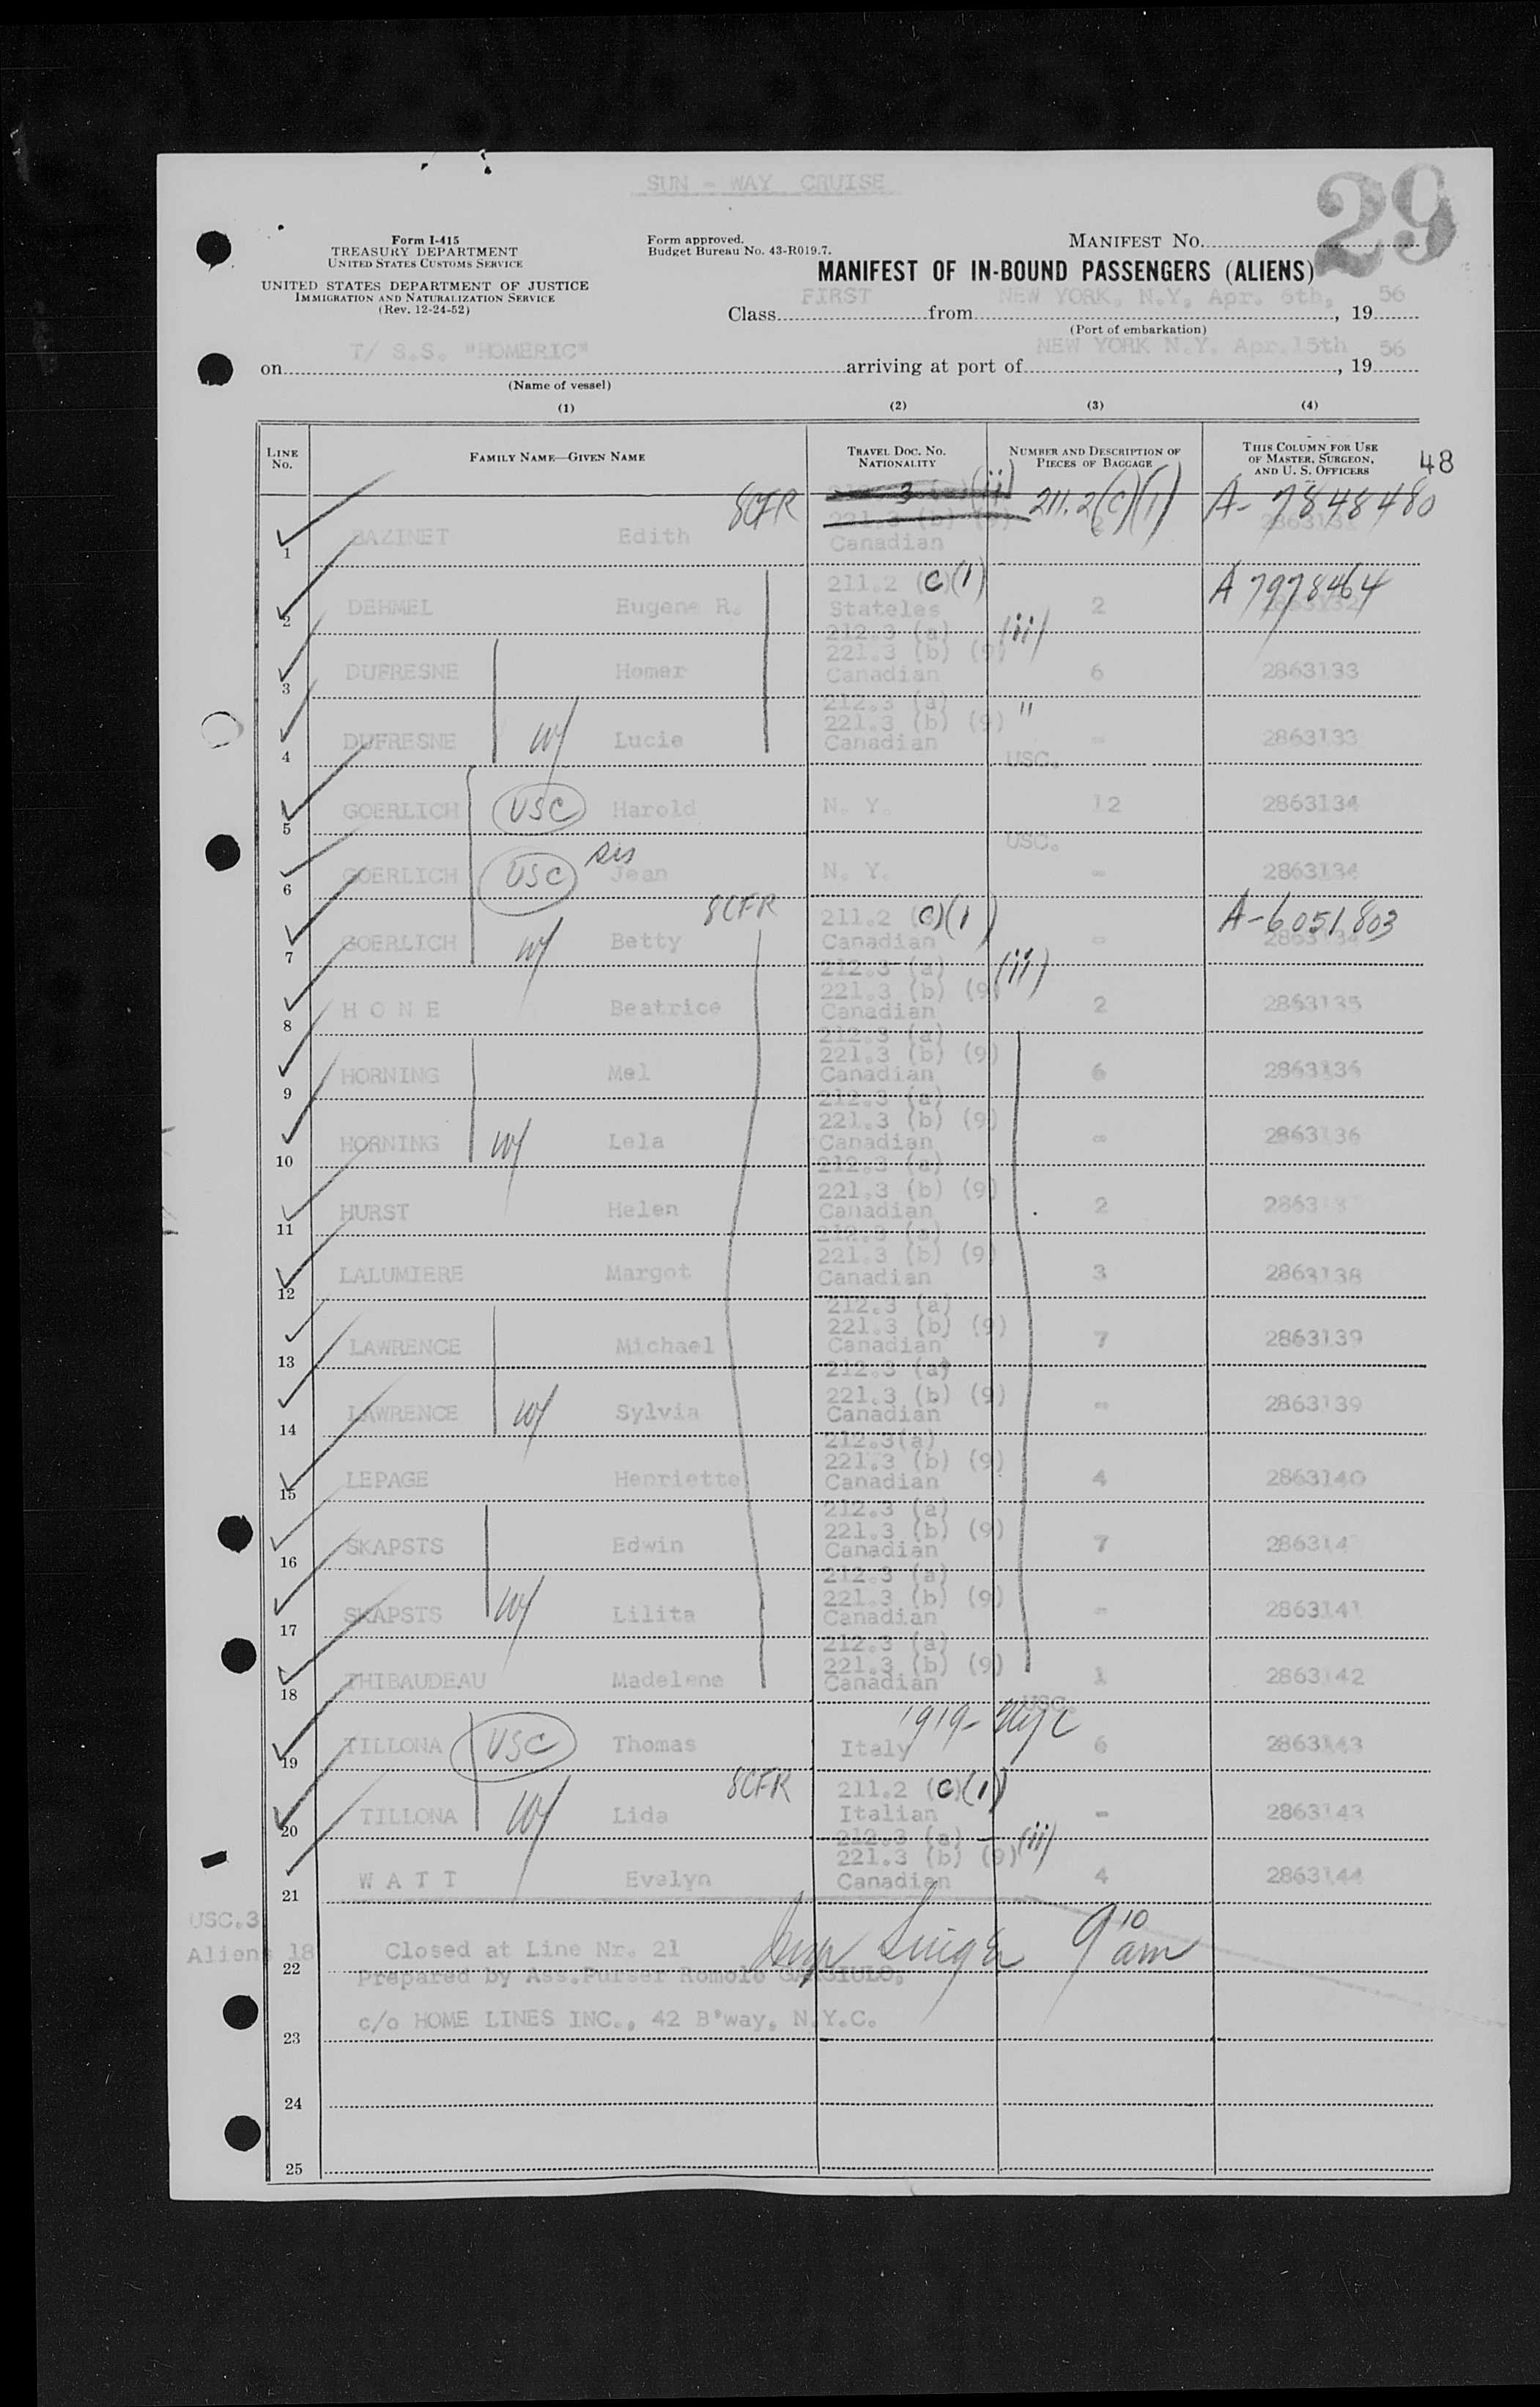 SUN - WAY CRUISE
29
Form I-415
TREASURY DEPARTMENT
UNITED STATES CUSTOMS SERVICE
UNITED STATES DEPARTMENT OF JUSTICE
IMMIGRATION AND NATURALIZATION SERVICE
(Rev. 12-24-52)
Form approved.
Budget Bureau No. 43-R019.7.
MANIFEST NO.
MANIFEST OF IN-BOUND PASSENGERS (ALIENS)
Class FIRST from NEW YORK, N.Y, Apr. 6th, , 19 56
(Port of embarkation)
on T/ S.S. "HOMERIC" arriving at port of NEW YORK N.Y. Apr.15th , 19 56
(Name of vessel)
(1) (2) (3) (4)
LINE No. FAMILY NAME—GIVEN NAME TRAVEL DOC. NO. NATIONALITY NUMBER AND DESCRIPTION OF PIECES OF BAGGAGE THIS COLUMN FOR USE OF MASTER, SURGEON, AND U. S. OFFICERS
48
8CFR 3 (ii) 211.2(C)(1) A-7848480
221.3 (b) (9)
1 BAZINET Edith Canadian 2 2863131
211.2 (C)(1) A 7978464
2 DEHMEL Eugene R. Stateles 2 2863132
212.3 (a) (ii)
221.3 (b) (9)
3 DUFRESNE Homer Canadian 6 2863133
212.3 (a)
221.3 (b) (9) "
4 DUFRESNE W/ Lucie Canadian - 2863133
USC.
5 GOERLICH USC Harold N. Y. 12 2863134
USC.
6 GOERLICH USC Jean N. Y. - 2863134
8CFR 211.2 (C)(1) A-6051803
7 GOERLICH W/ Betty Canadian - 2863134
212.3 (a) (ii)
221.3 (b) (9)
8 H O N E Beatrice Canadian 2 2863135
212.3 (a)
221.3 (b) (9)
9 HORNING Mel Canadian 6 2863136
212.3 (a)
221.3 (b) (9)
10 HORNING W/ Lela Canadian - 2863136
212.3 (a)
221.3 (b) (9)
11 HURST Helen Canadian 2 2863
212.3 (a)
221.3 (b) (9)
12 LALUMIERE Margot Canadian 3 2863138
212.3 (a)
221.3 (b) (9)
13 LAWRENCE Michael Canadian 7 2863139
212.3 (a)
221.3 (b) (9)
14 LAWRENCE W/ Sylvia Canadian - 2863139
212.3(a)
221.3 (b) (9)
15 LEPAGE Henriette Canadian 4 2863140
212.3 (a)
221.3 (b) (9)
16 SKAPSTS Edwin Canadian 7 286314
212.3 (a)
221.3 (b) (9)
17 SKAPSTS W/ Lilita Canadian - 2863141
212.3 (a)
221.3 (b) (9)
18 THIBAUDEAU Madelene Canadian 1 2863142
USC.
1919-
19 TILLONA USC Thomas Italy 6 2863143
8CFR 211.2 (C)(1)
20 TILLONA W/ Lida Italian - 2863143
212.3 (a) - (ii)
221.3 (b) (9)
21 W A T T Evelyn Canadian 4 2863144
USC.3
Aliens 18
22 Closed at Line Nr. 21 9 10 am
Prepared by Ass.Purser Romolo GARGIULO,
23 c/o HOME LINES INC., 42 B'way, N.Y.C.
24
25